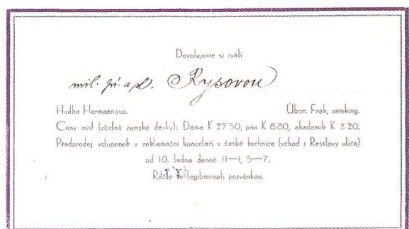 Dovolujeme si zváti
mil. pí. a sl. Rysovou
Hudba Hermannova. Úbor: Frak, smoking.
Ceny míst (včetně zemské dávky): Dáma K 27·50, pán K 8·80, akademik K 2·20.
Předprodej vstupenek v reklamační kanceláři v české technice (vchod z Resslovy ulice)
od 10. ledna denně 11—1, 5—7.
Račte se legitimovati pozvánkou.